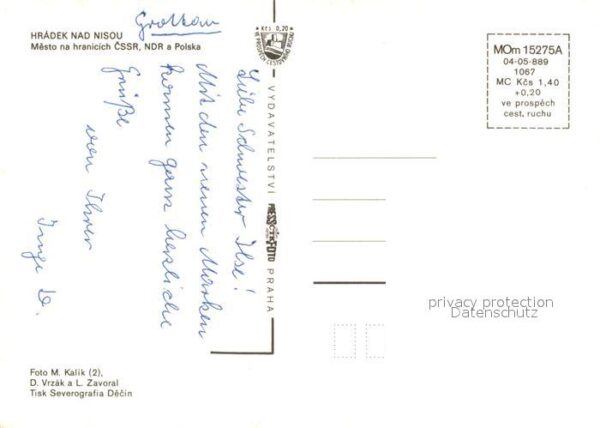 Grottau
HRÁDEK NAD NISOU
Město na hranicích ČSSR, NDR a Polska
Kčs 0,20
VE PROSPĚCH CESTOVNÍHO RUCHU
MOm 15275A
04-05-889
1067
MC Kčs 1,40
+0,20
ve prospěch
cest. ruchu
Liebe Schwester Ilse!
Mit den neuen Marken
kommen ganz herzliche
Grüße
von Ihrer
Inge D.
VYDAVATELSTVÍ PRESSFOTO PRAHA
privacy protection
Datenschutz
Foto M. Kalík (2),
D. Vrzák a L. Zavoral
Tisk Severografia Děčín